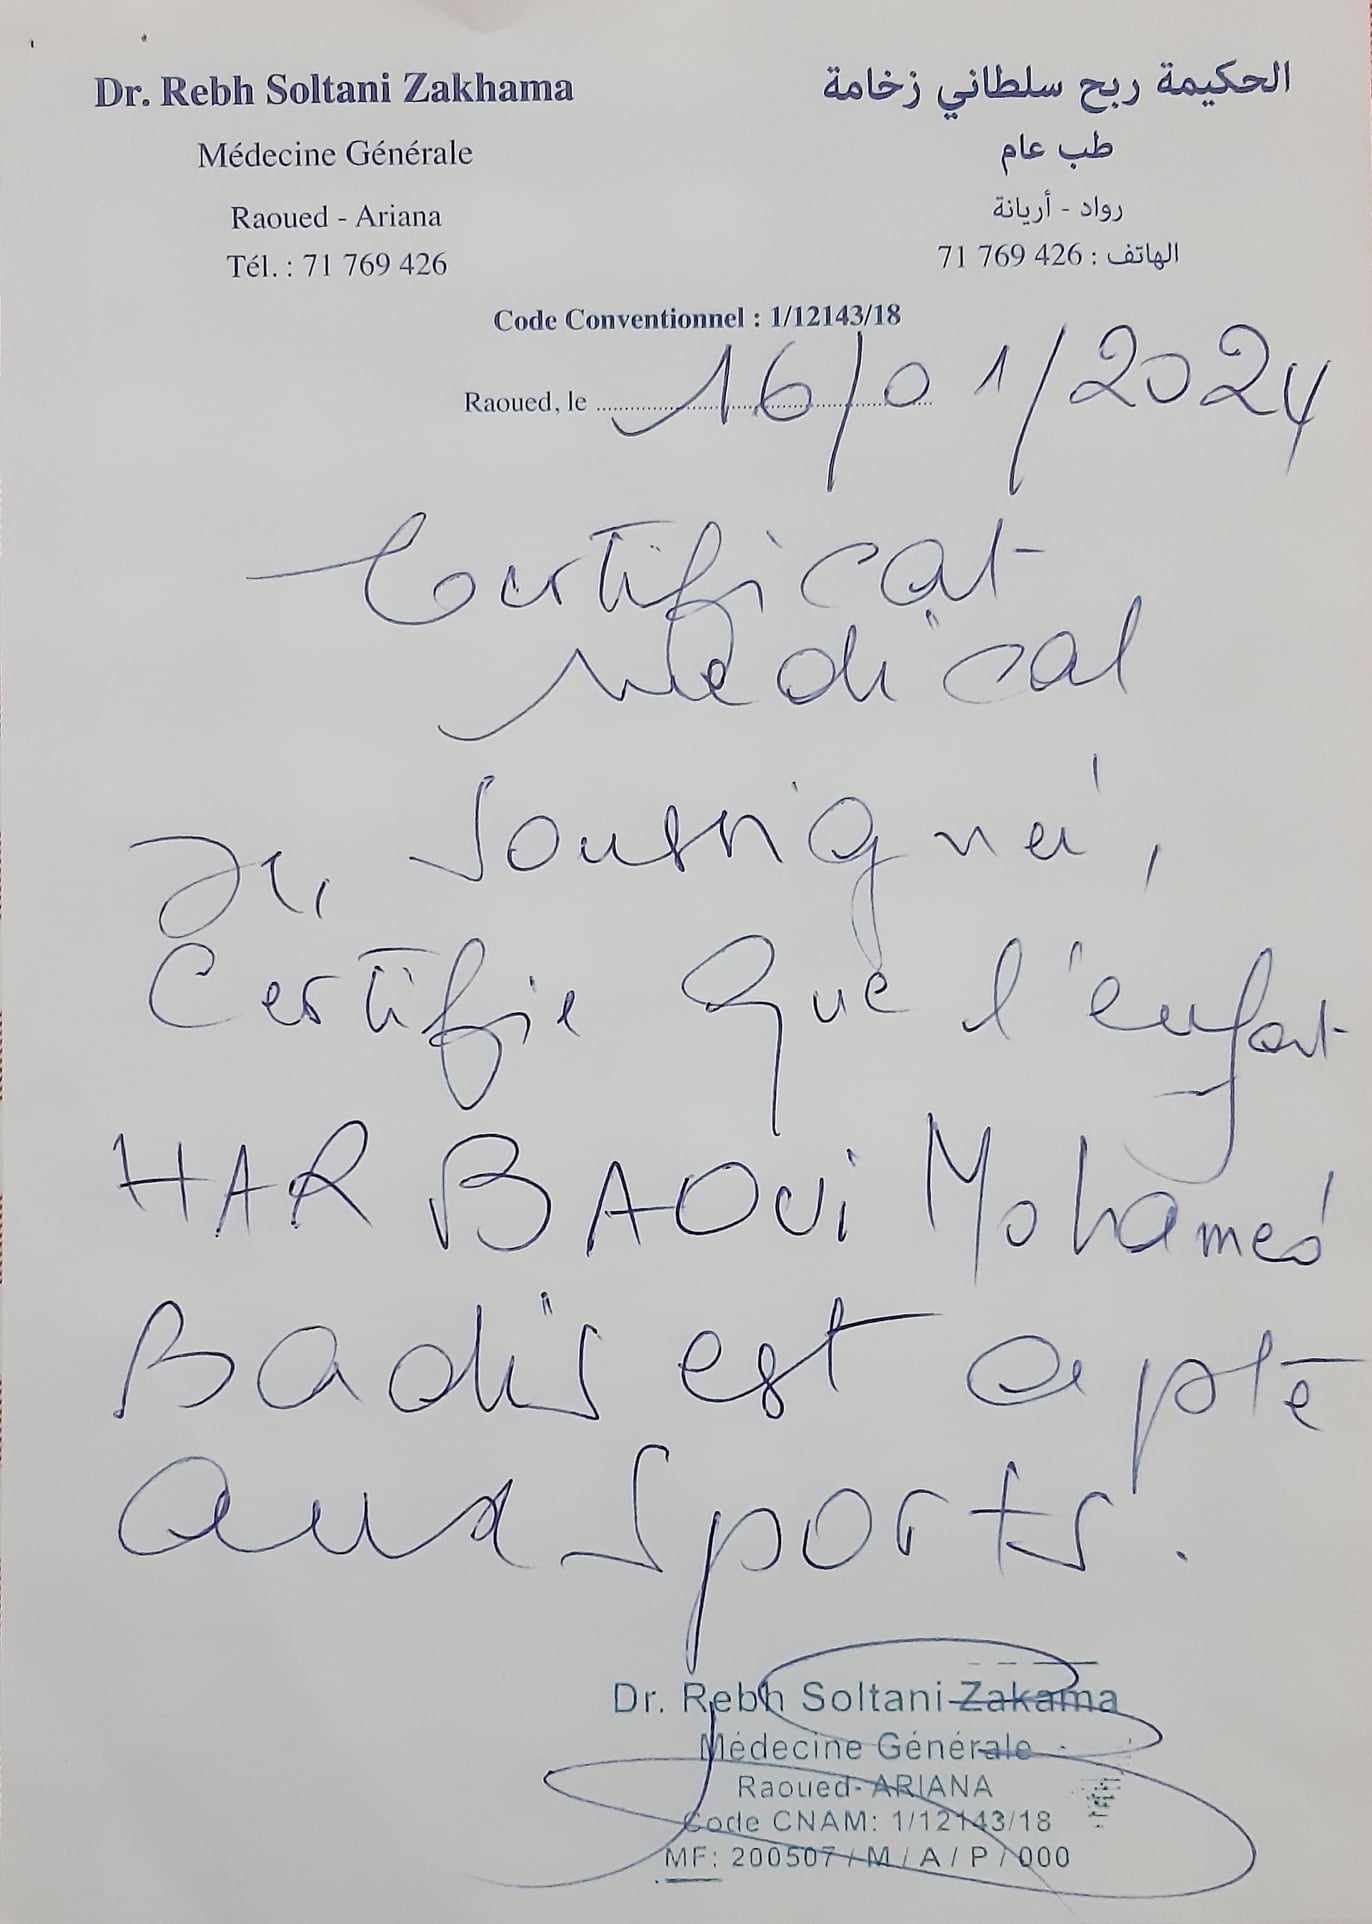 Dr. Rebh Soltani Zakhama
Médecine Générale
Raoued - Ariana
Tél. : 71 769 426
الحكيمة ربح سلطاني زخامة
طب عام
رواد - أريانة
الهاتف : 426 769 71
Code Conventionnel : 1/12143/18
Raoued, le 16/01/2024
Certificat
Médical
Je, soussigné,
Certifie que l'enfant
HARBAOUi Mohamed
Badis est apte
aux sports.
Dr. Rebh Soltani Zakama
Médecine Générale
Raoued- ARIANA
Code CNAM: 1/12143/18
MF: 200507 / M / A / P / 000